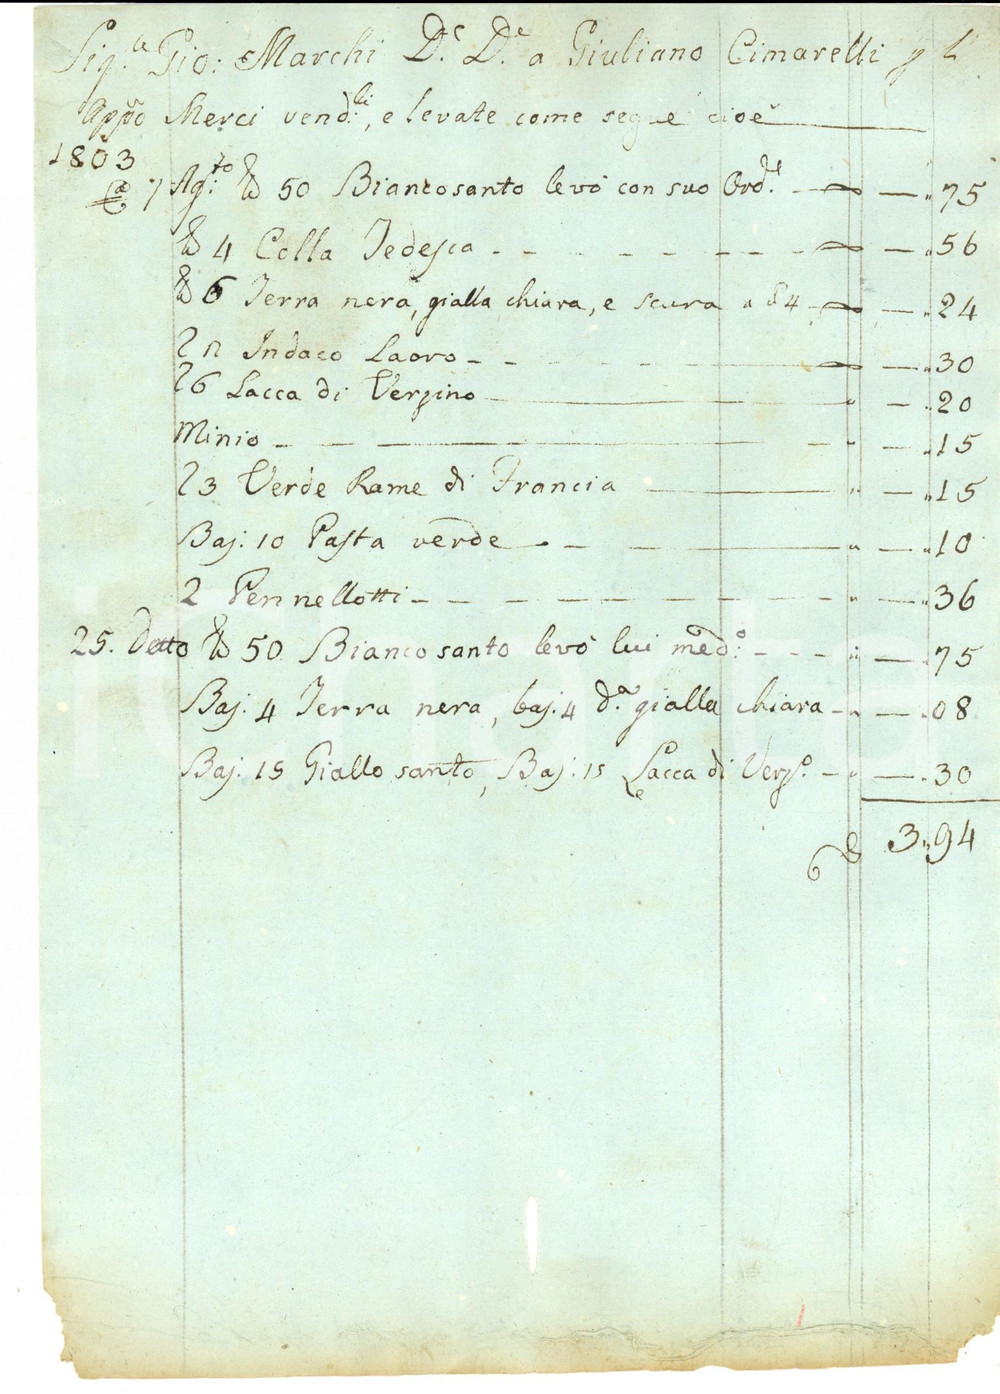 Sig.re Gio: Marchi D.e D.e a Giuliano Cimarelli p l'
App.o Merci vend.li, e levate come segue cioè
1803
7 Ag.to ℔ 50 Biancosanto levò con suo Ord.e — „ 75
℔ 4 Colla Tedesca — „ 56
℔ 6 Terra nera, gialla chiara, e scura a 4 — „ 24
Indaco Laoro — „ 30
26 Lacca di Verzino — „ 20
Minio — „ 15
23 Verde Rame di Francia — „ 15
Baj: 10 Pasta verde — „ 10
2 Pennellotti — „ 36
25. Detto ℔ 50 Biancosanto levò lui med.o — „ 75
Baj: 4 Terra nera, baj. 4 d.a gialla chiara — „ 08
Baj: 15 Giallo santo, Baj: 15 Lacca di Verz.o — „ 30
3„94